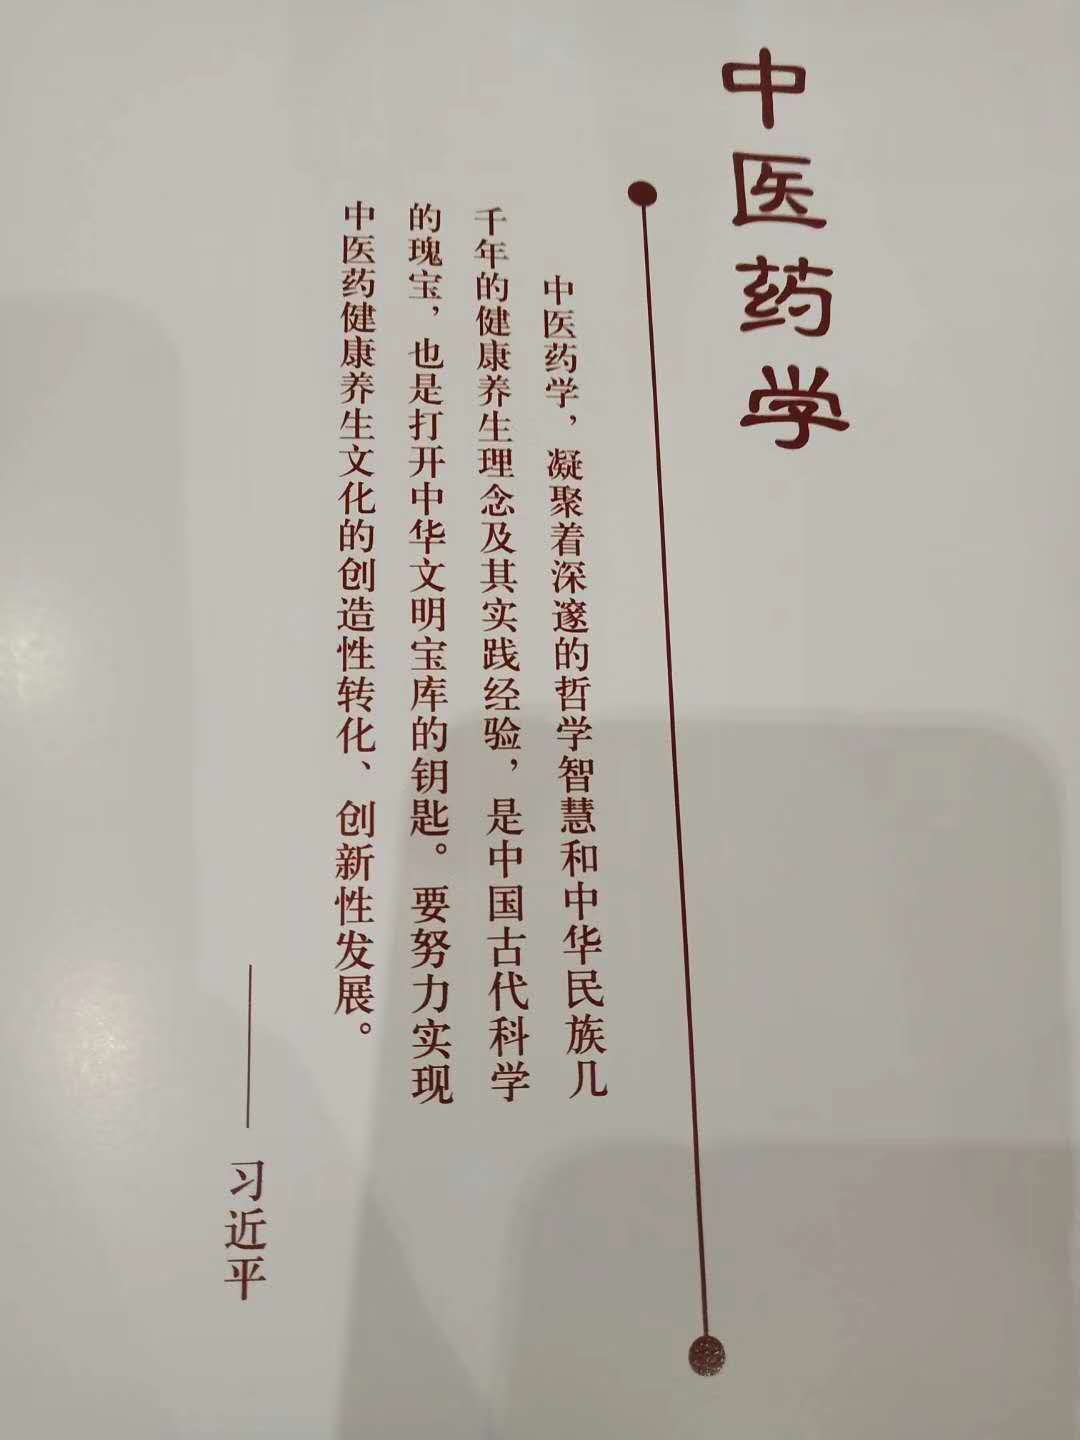 中医药学
中医药学，凝聚着深邃的哲学智慧和中华民族几
千年的健康养生理念及其实践经验，是中国古代科学
的瑰宝，也是打开中华文明宝库的钥匙。要努力实现
中医药健康养生文化的创造性转化、创新性发展。
——习近平